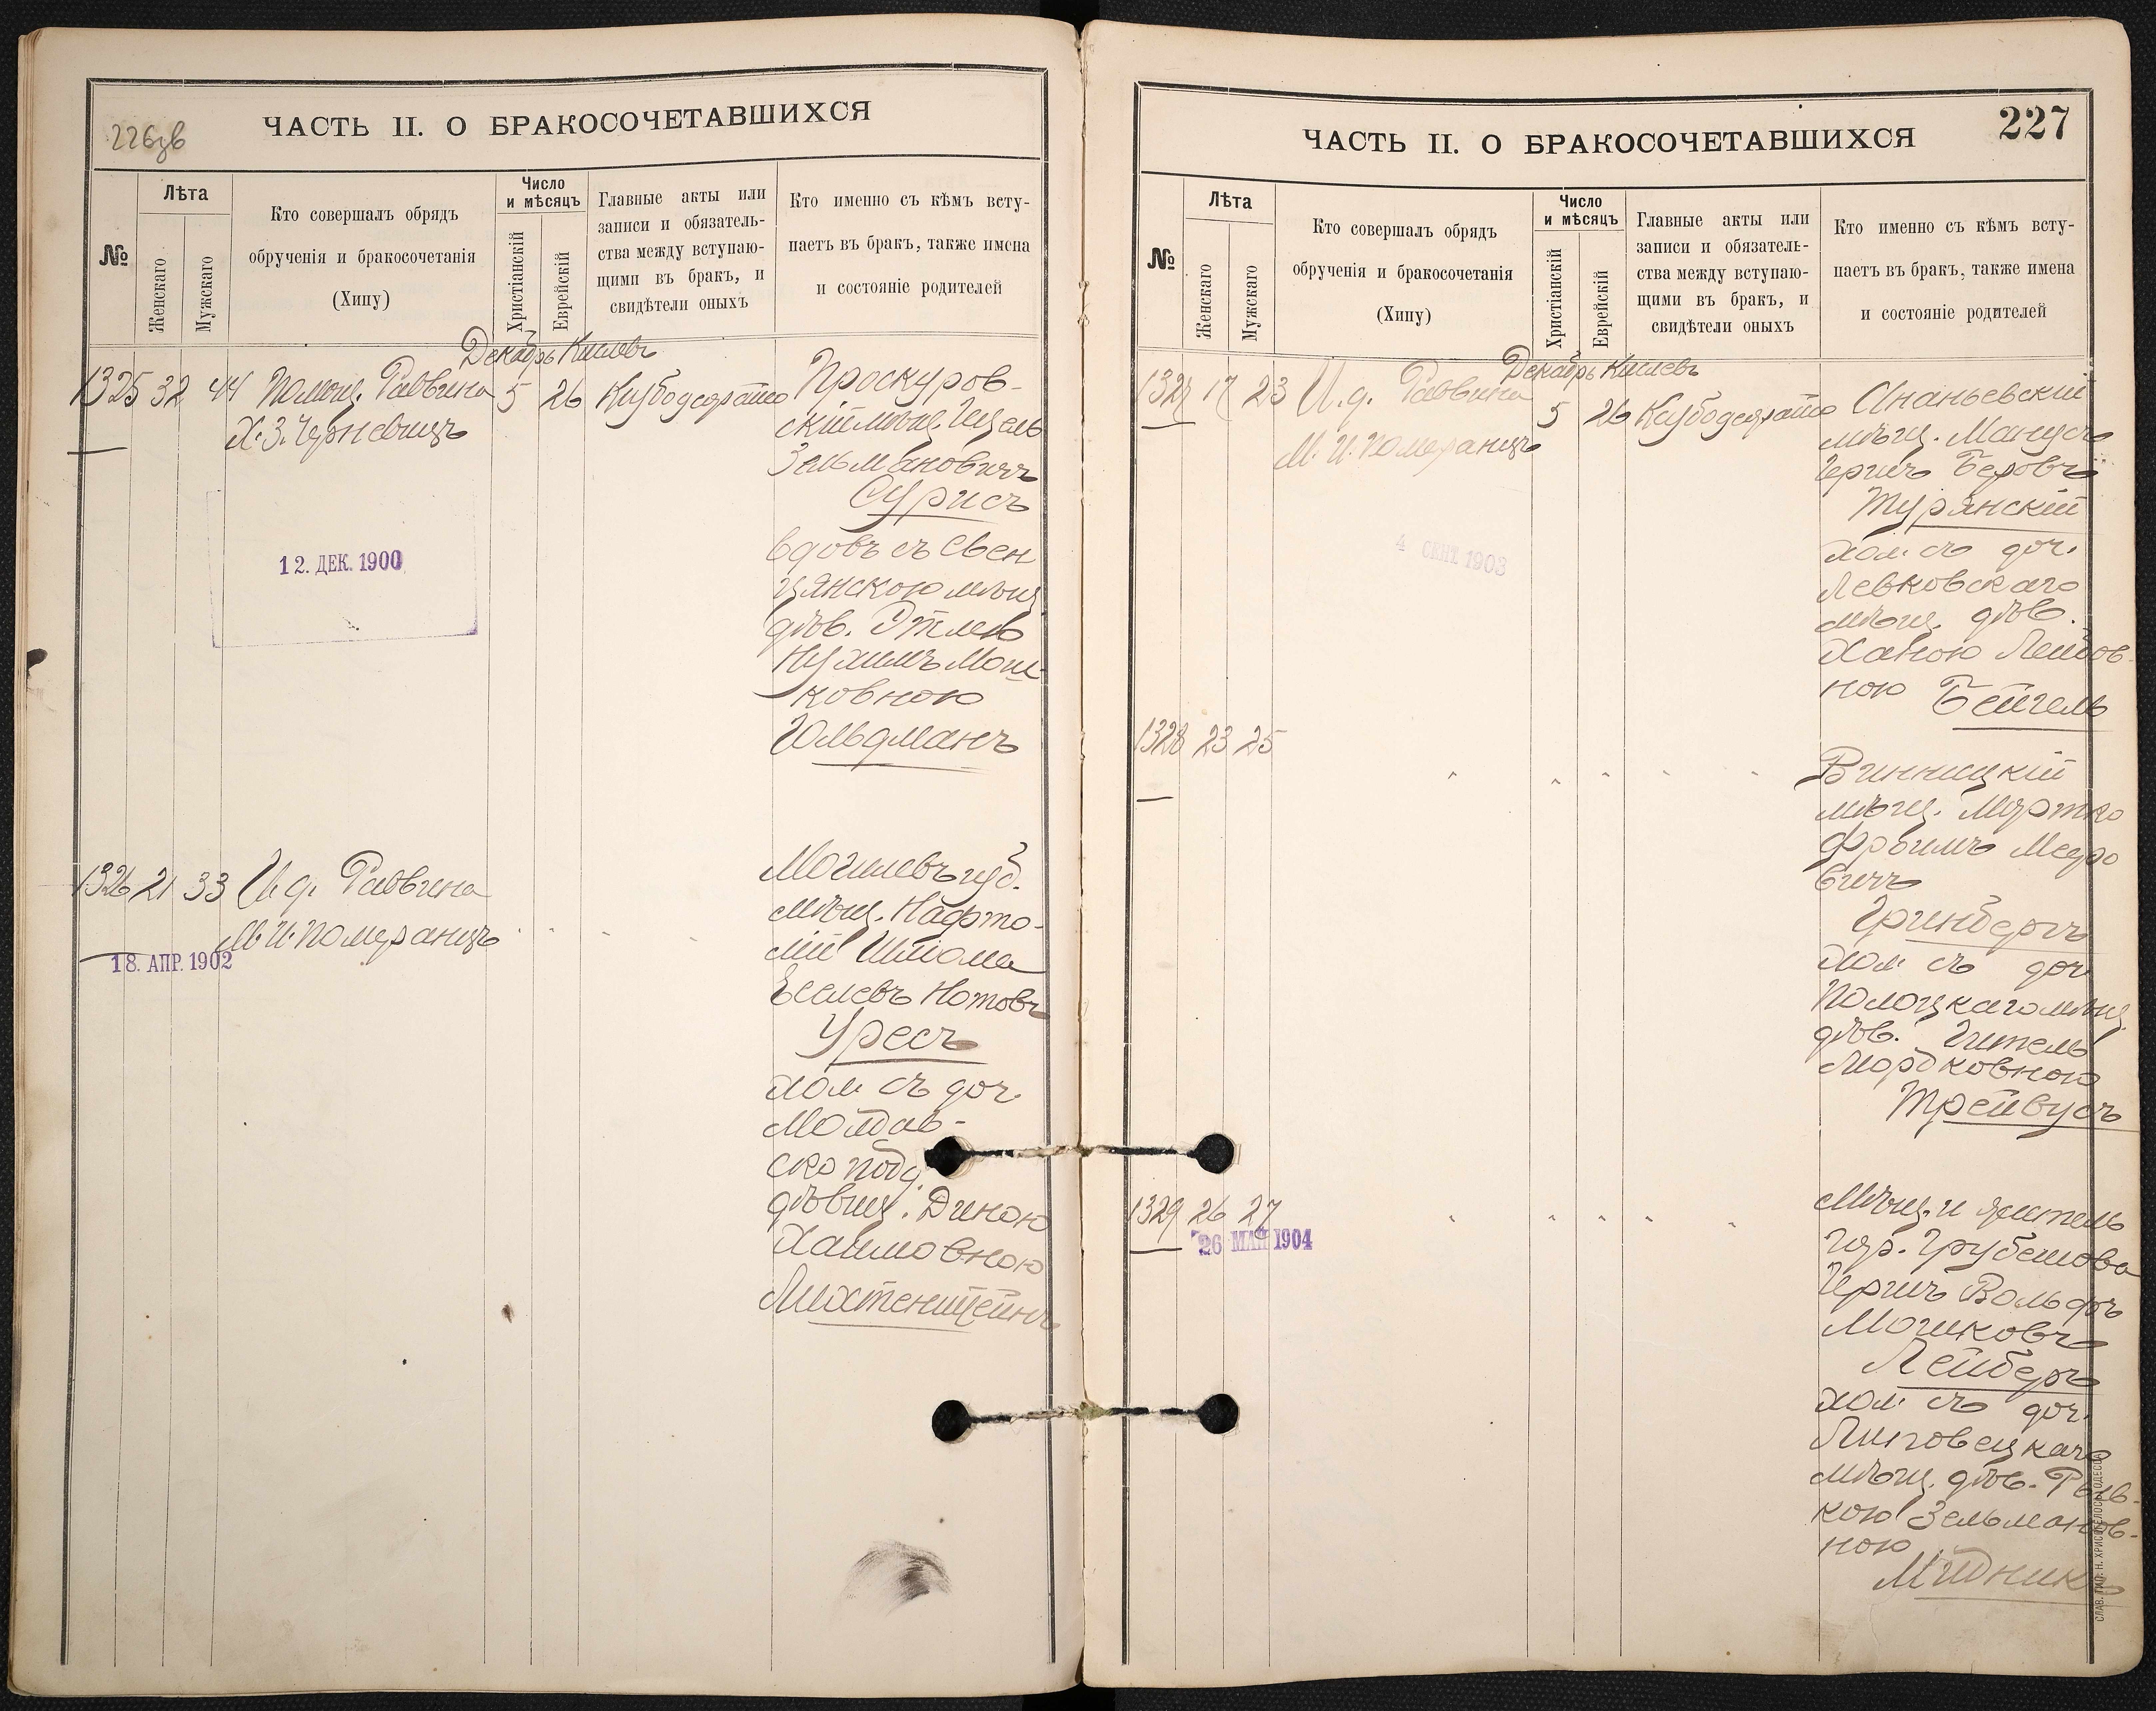 226зв
ЧАСТЬ II. О БРАКОСОЧЕТАВШИХСЯ
№
Лѣта
Женскаго
Мужскаго
Кто совершалъ обрядъ
обрученія и бракосочетанія
(Хипу)
Число
и мѣсяцъ
Христіанскій
Еврейскій
Главные акты или
записи и обязатель-
ства между вступаю-
щими въ бракъ, и
свидѣтели оныхъ
Кто именно съ кѣмъ всту-
паетъ въ бракъ, также имена
и состояніе родителей
Декабрь Кислевъ
1325 32 44 Помощ. Раввина 5 26
Х. З. Черневицъ
Проскуров-
скій мѣщ.
Зельмановичъ
Сурисъ
вдовъ съ Свен
цянскою мѣщ
дѣв. Этлею
Нухимъ Мош-
ковною
Гольдманъ
12. ДЕК. 1900
1326 21 33 И. д. Раввина
М. И. Померанцъ
18. АПР. 1902
Могилевъ губ.
мѣщ. Нафто-
лій Шліома
Еселевъ Нотовъ
Уресъ
хол. съ доч.
Молдав-
ско подд.
дѣвиц. Диною
Хаимовною
Лихтенштейнъ
227
ЧАСТЬ II. О БРАКОСОЧЕТАВШИХСЯ
№
Лѣта
Женскаго
Мужскаго
Кто совершалъ обрядъ
обрученія и бракосочетанія
(Хипу)
Число
и мѣсяцъ
Христіанскій
Еврейскій
Главные акты или
записи и обязатель-
ства между вступаю-
щими въ бракъ, и
свидѣтели оныхъ
Кто именно съ кѣмъ всту-
паетъ въ бракъ, также имена
и состояніе родителей
Декабрь Кислевъ
1327 17 23 И. д. Раввина 5 26
М. И. Померанцъ
4 СЕНТ. 1903
Ананьевскій
мѣщ. Манусъ
Гершъ Беровъ
Турянскій
хол. съ доч.
Левковскаго
мѣщ. дѣв.
Ханою Лейбов-
ною Бейгель
1328 23 25
Винницкій
мѣщ. Мортко
Фроимъ Мееро
вичъ
Гринбергъ
хол. съ доч
Полоцкаго мѣщ.
дѣв. Гитель
Мордковною
Трейвусъ
1329 26 27
26 МАЙ 1904
Мѣщ. и житель
гор. Грубешова
Гершъ Вольфъ
Мошковъ
Лейберъ
хол. съ доч.
Липовецкаго
мѣщ. дѣв. Рив-
кою Зельманов-
ною
Мидникъ
СЛАВ. ТИП. Н. ХРИСОГЕЛОСЪ, ОДЕССА